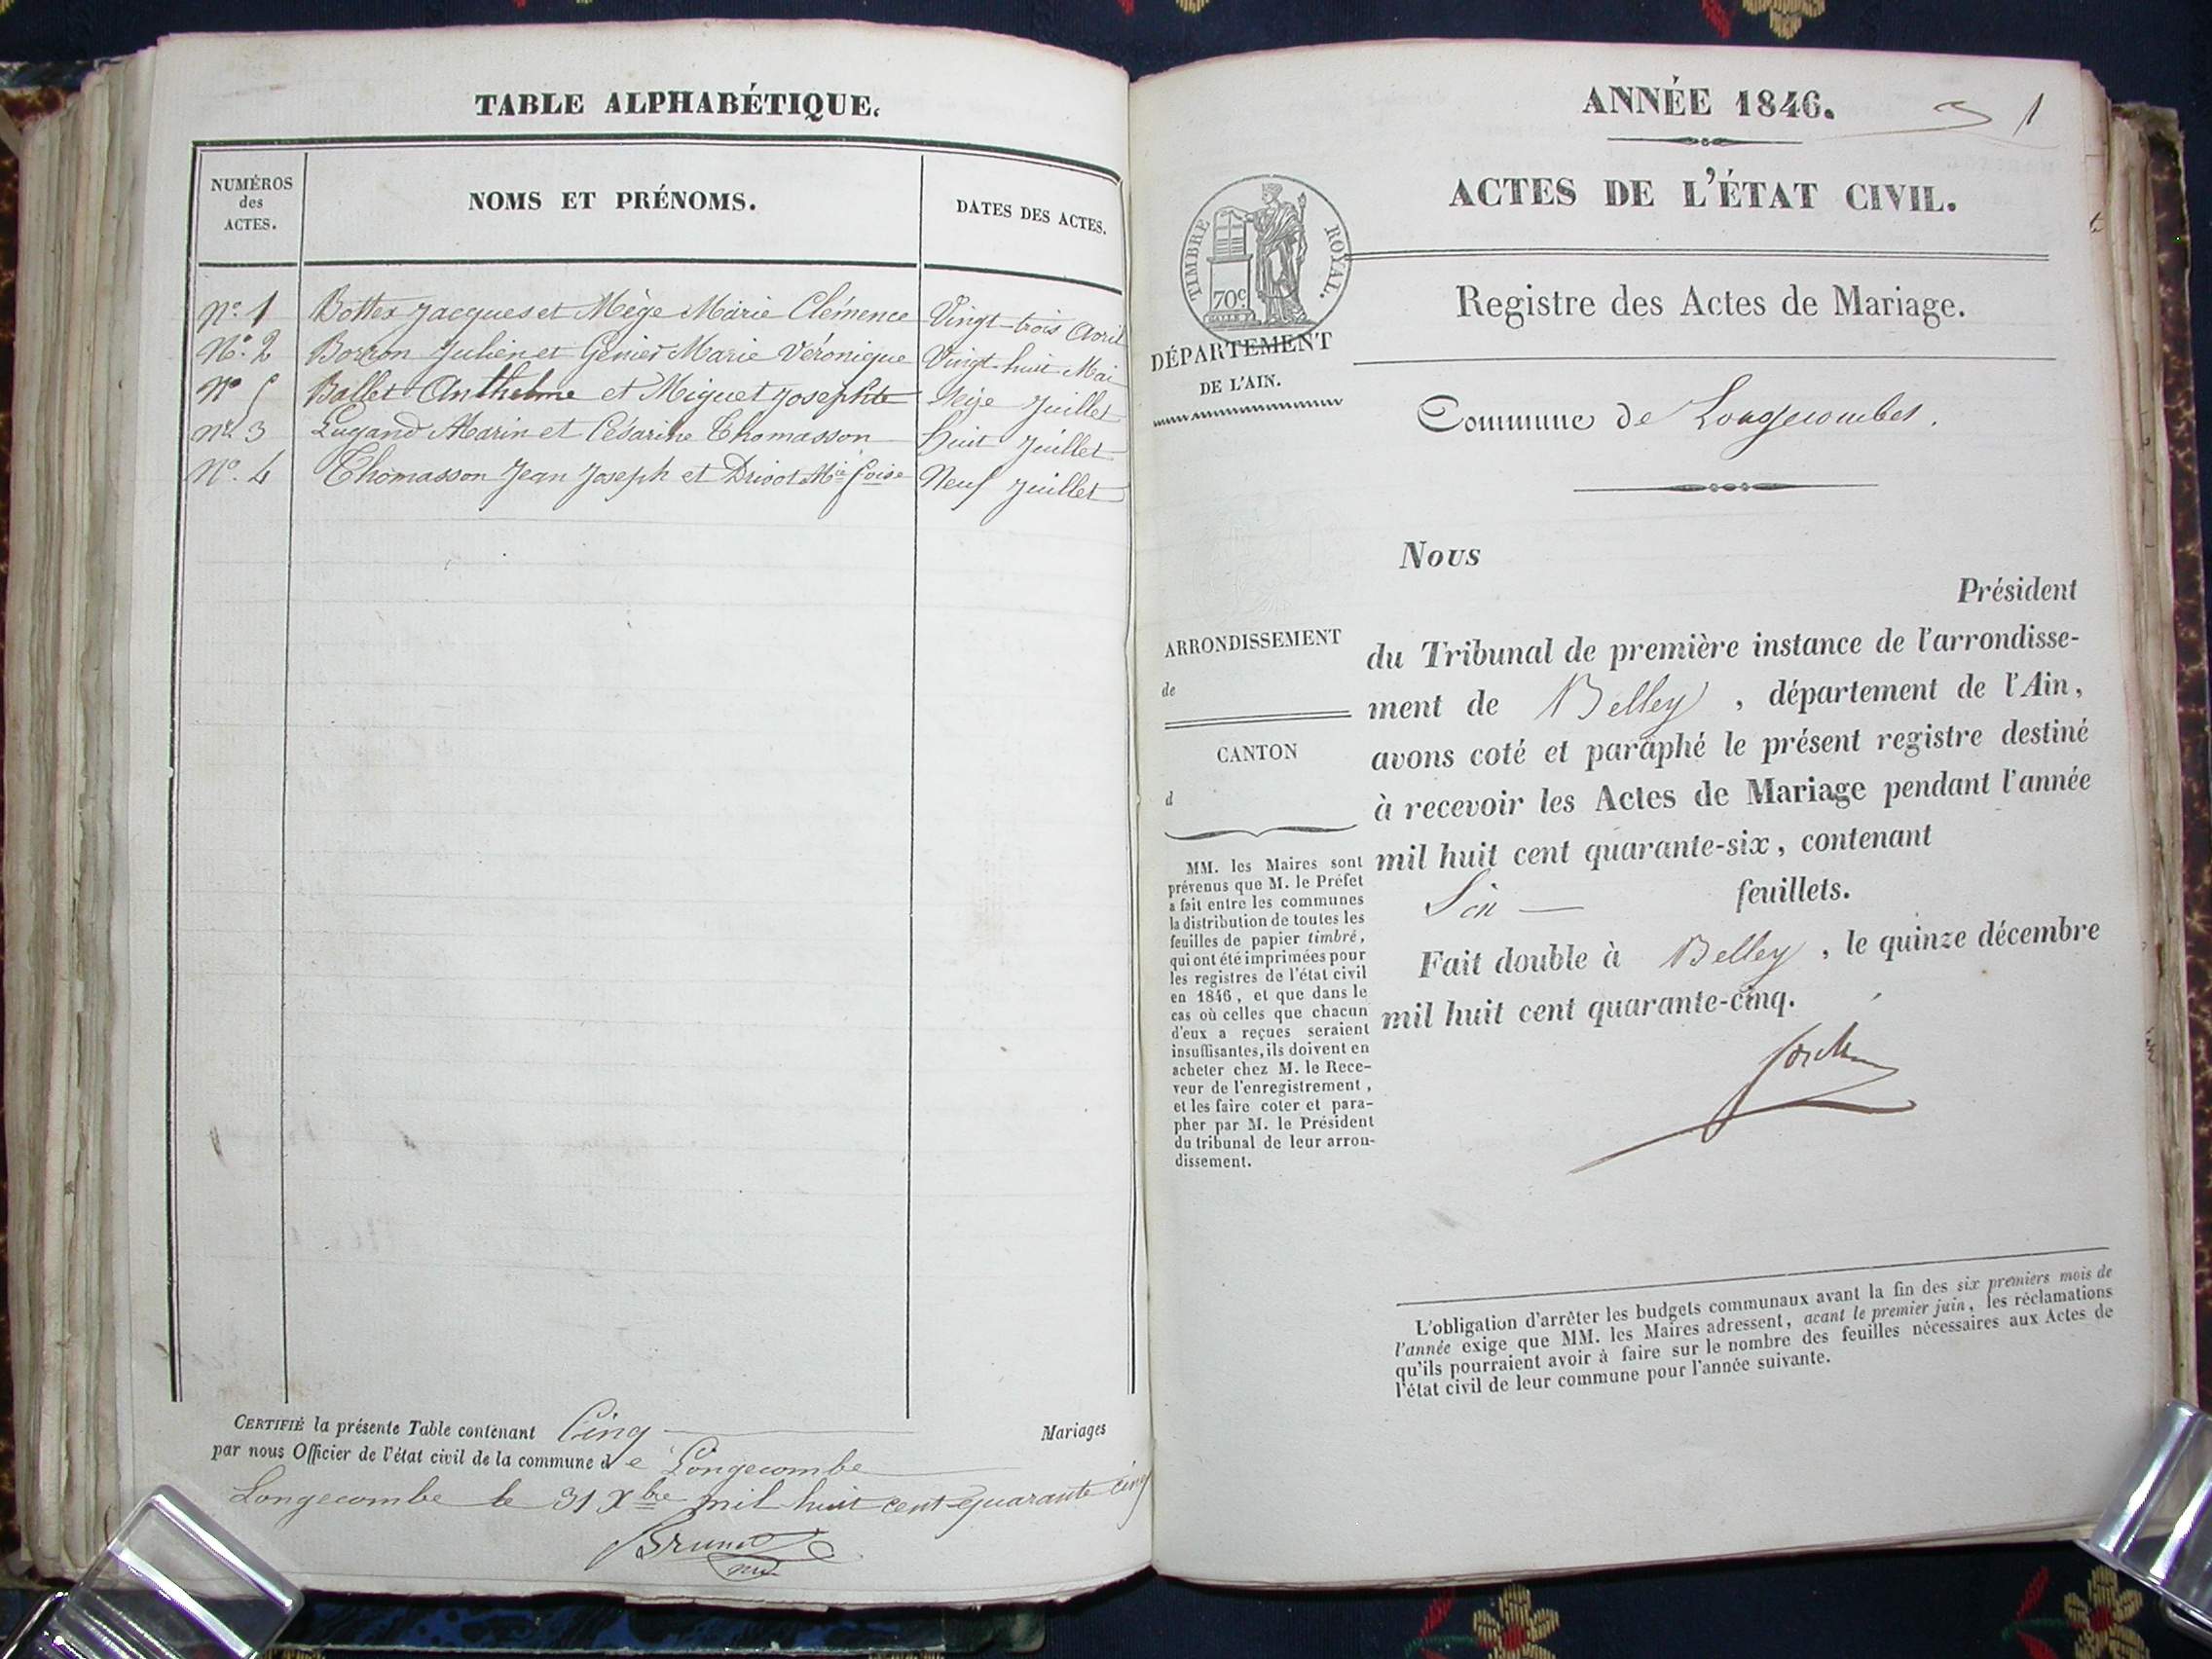 TABLE ALPHABÉTIQUE.
NUMÉROS
des
ACTES.
NOMS ET PRÉNOMS.
DATES DES ACTES.
N° 1 Bottex Jacques et Mège Marie Clémence Vingt-trois Avril
N° 2 Borron Julien et Genier Marie Véronique Vingt-huit Mai
N° 5 Ballet Anthelme et Miguet Josephte Seize Juillet
N° 3 Lugand Marin et Césarine Thomasson Huit Juillet
N° 4 Thomasson Jean Joseph et Drivot Mie foise Neuf Juillet
CERTIFIÉ la présente Table contenant Cinq Mariages
par nous Officier de l'état civil de la commune de Longecombe
Longecombe le 31 Xbre mil huit cent quarante cinq
Brunet
ANNÉE 1846. 1
ACTES DE L'ÉTAT CIVIL.
TIMBRE ROYAL.
70c
Registre des Actes de Mariage.
DÉPARTEMENT
DE L'AIN.
Commune de Longecombes.
Nous
Président
ARRONDISSEMENT
de
CANTON
d
du Tribunal de première instance de l'arrondisse-
ment de Belley, département de l'Ain,
avons coté et paraphé le présent registre destiné
à recevoir les Actes de Mariage pendant l'année
mil huit cent quarante-six, contenant
Six feuillets.
Fait double à Belley, le quinze décembre
mil huit cent quarante-cinq.
MM. les Maires sont
prévenus que M. le Préfet
a fait entre les communes
la distribution de toutes les
feuilles de papier timbré,
qui ont été imprimées pour
les registres de l'état civil
en 1846, et que dans le
cas où celles que chacun
d'eux a reçues seraient
insuffisantes, ils doivent en
acheter chez M. le Rece-
veur de l'enregistrement,
et les faire coter et para-
pher par M. le Président
du tribunal de leur arron-
dissement.
L'obligation d'arrêter les budgets communaux avant la fin des six premiers mois de
l'année exige que MM. les Maires adressent, avant le premier juin, les réclamations
qu'ils pourraient avoir à faire sur le nombre des feuilles nécessaires aux Actes de
l'état civil de leur commune pour l'année suivante.